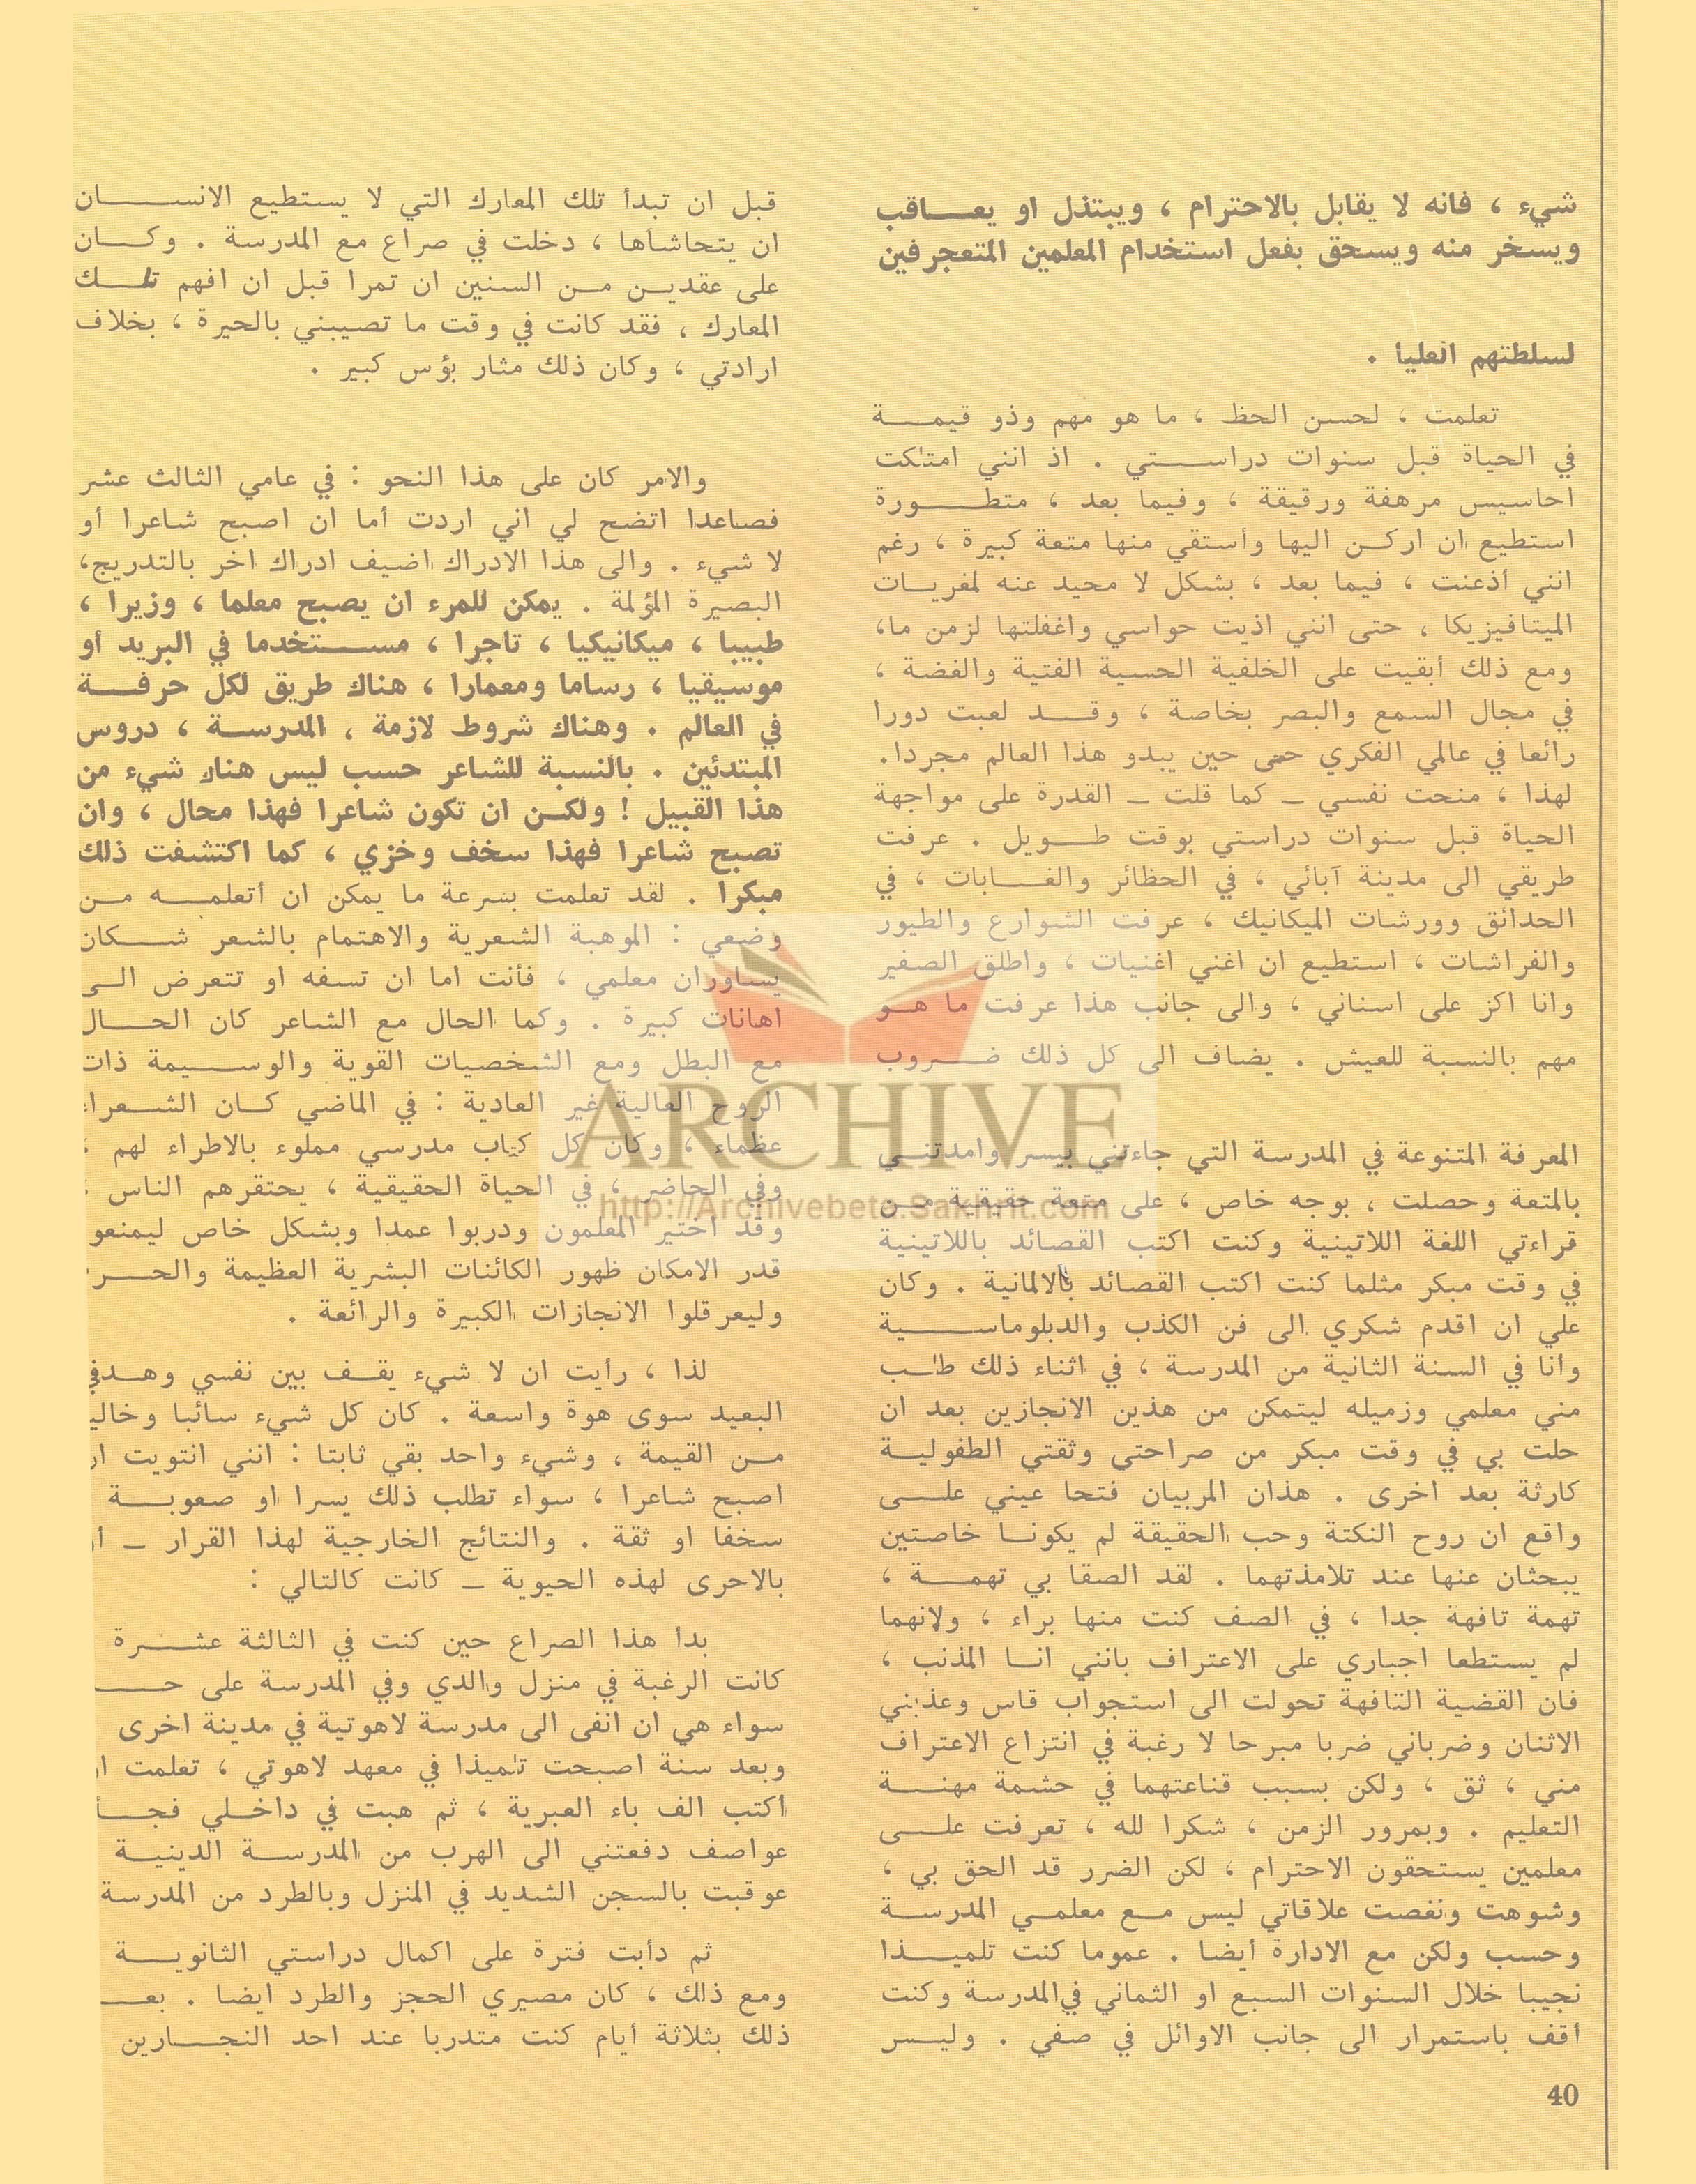 شيء ، فانه لا يقابل بالاحترام ، ويبتذل او يعاقب
ويسخر منه ويسحق بفعل استخدام المعلمين المتعجرفين
لسلطتهم العليا .
تعلمت ، لحسن الحظ ، ما هو مهم وذو قيمة
في الحياة قبل سنوات دراستي . اذ انني امتلكت
احاسيس مرهفة ورقيقة ، وفيما بعد ، متطورة
استطيع ان اركن اليها وأستقي منها متعة كبيرة ، رغم
انني أذعنت ، فيما بعد ، بشكل لا محيد عنه لمغريات
الميتافيزيكا ، حتى انني اذيت حواسي واغفلتها لزمن ما،
ومع ذلك أبقيت على الخلفية الحسية الفتية والغضة ،
في مجال السمع والبصر بخاصة ، وقد لعبت دورا
رائعا في عالمي الفكري حتى حين يبدو هذا العالم مجردا.
لهذا ، منحت نفسي – كما قلت – القدرة على مواجهة
الحياة قبل سنوات دراستي بوقت طويل . عرفت
طريقي الى مدينة آبائي ، في الحظائر والغابات ، في
الحدائق وورشات الميكانيك ، عرفت الشوارع والطيور
والفراشات ، استطيع ان اغني اغنيات ، واطلق الصفير
وانا اكز على اسناني ، والى جانب هذا عرفت ما هو
مهم بالنسبة للعيش . يضاف الى كل ذلك ضروب
المعرفة المتنوعة في المدرسة التي جاءتني بيسر وامدتني
بالمتعة وحصلت ، بوجه خاص ، على متعة حقيقية من
قراءتي اللغة اللاتينية وكنت اكتب القصائد باللاتينية
في وقت مبكر مثلما كنت اكتب القصائد بالالمانية . وكان
علي ان اقدم شكري الى فن الكذب والدبلوماسية
وأنا في السنة الثانية من المدرسة ، في اثناء ذلك طلب
مني معلمي وزميله ليتمكن من هذين الانجازين بعد ان
حلت بي في وقت مبكر من صراحتي وثقتي الطفولية
كارثة بعد اخرى . هذان المربيان فتحا عيني على
واقع ان روح النكتة وحب الحقيقة لم يكونا خاصتين
يبحثان عنها عند تلامذتهما . لقد الصقا بي تهمة ،
تهمة تافهة جدا ، في الصف كنت منها براء ، ولانهما
لم يستطعا اجباري على الاعتراف بانني انا المذنب ،
فان القضية التافهة تحولت الى استجواب قاس وعذبني
الاثنان وضرباني ضربا مبرحا لا رغبة في انتزاع الاعتراف
مني ، ثق ، ولكن بسبب قناعتهما في حشمة مهنة
التعليم . وبمرور الزمن ، شكرا لله ، تعرفت على
معلمين يستحقون الاحترام ، لكن الضرر قد الحق بي ،
وشوهت ونغصت علاقاتي ليس مع معلمي المدرسة
وحسب ولكن مع الادارة أيضا . عموما كنت تلميذا
نجيبا خلال السنوات السبع او الثماني في المدرسة وكنت
أقف باستمرار الى جانب الاوائل في صفي . وليسر
قبل ان تبدأ تلك المعارك التي لا يستطيع الانسان
ان يتحاشاها ، دخلت في صراع مع المدرسة . وكان
على عقدين من السنين ان تمرا قبل ان افهم تلك
المعارك ، فقد كانت في وقت ما تصيبني بالحيرة ، بخلاف
ارادتي ، وكان ذلك مثار بؤس كبير .
والامر كان على هذا النحو : في عامي الثالث عشر
فصاعدا اتضح لي اني اردت أما ان اصبح شاعرا أو
لا شيء . والى هذا الادراك اضيف ادراك اخر بالتدريج،
البصيرة المؤلمة . يمكن للمرء ان يصبح معلما ، وزيرا ،
طبيبا ، ميكانيكيا ، تاجرا ، مستخدما في البريد أو
موسيقيا ، رساما ومعمارا ، هناك طريق لكل حرفة
في العالم . وهناك شروط لازمة ، المدرسة ، دروس
المبتدئين . بالنسبة للشاعر حسب ليس هناك شيء من
هذا القبيل ! ولكن ان تكون شاعرا فهذا محال ، وان
تصبح شاعرا فهذا سخف وخزي ، كما اكتشفت ذلك
مبكرا . لقد تعلمت بسرعة ما يمكن ان أتعلمه من
وضعي : الموهبة الشعرية والاهتمام بالشعر شكان
يساوران معلمي ، فأنت اما ان تسفه او تتعرض الى
اهانات كبيرة . وكما الحال مع الشاعر كان الحال
مع البطل ومع الشخصيات القوية والوسيمة ذات
الروح العالية غير العادية : في الماضي كان الشعراء
عظماء ، وكان كل كتاب مدرسي مملوء بالاطراء لهم ،
وفي الحاضر ، في الحياة الحقيقية ، يحتقرهم الناس ،
وقد اختير المعلمون ودربوا عمدا وبشكل خاص ليمنعو
قدر الامكان ظهور الكائنات البشرية العظيمة والحر
وليعرقلوا الانجازات الكبيرة والرائعة .
لذا ، رأيت ان لا شيء يقف بين نفسي وهدفي
البعيد سوى هوة واسعة . كان كل شيء سائبا وخالي
من القيمة ، وشيء واحد بقي ثابتا : انني انتويت ان
اصبح شاعرا ، سواء تطلب ذلك يسرا او صعوبة
سخفا او ثقة . والنتائج الخارجية لهذا القرار – أو
بالاحرى لهذه الحيوية – كانت كالتالي :
بدأ هذا الصراع حين كنت في الثالثة عشرة
كانت الرغبة في منزل والدي وفي المدرسة على حد
سواء هي ان انفى الى مدرسة لاهوتية في مدينة اخرى
وبعد سنة اصبحت تلميذا في معهد لاهوتي ، تعلمت ان
أكتب الف باء العبرية ، ثم هبت في داخلي فجأ
عواصف دفعتني الى الهرب من المدرسة الدينية
عوقبت بالسجن الشديد في المنزل وبالطرد من المدرسة
ثم دأبت فترة على اكمال دراستي الثانوية
ومع ذلك ، كان مصيري الحجز والطرد ايضا . بعد
ذلك بثلاثة أيام كنت متدربا عند احد النجارين
40
ARCHIVE
http://Archivebeta.Sakhrit.com